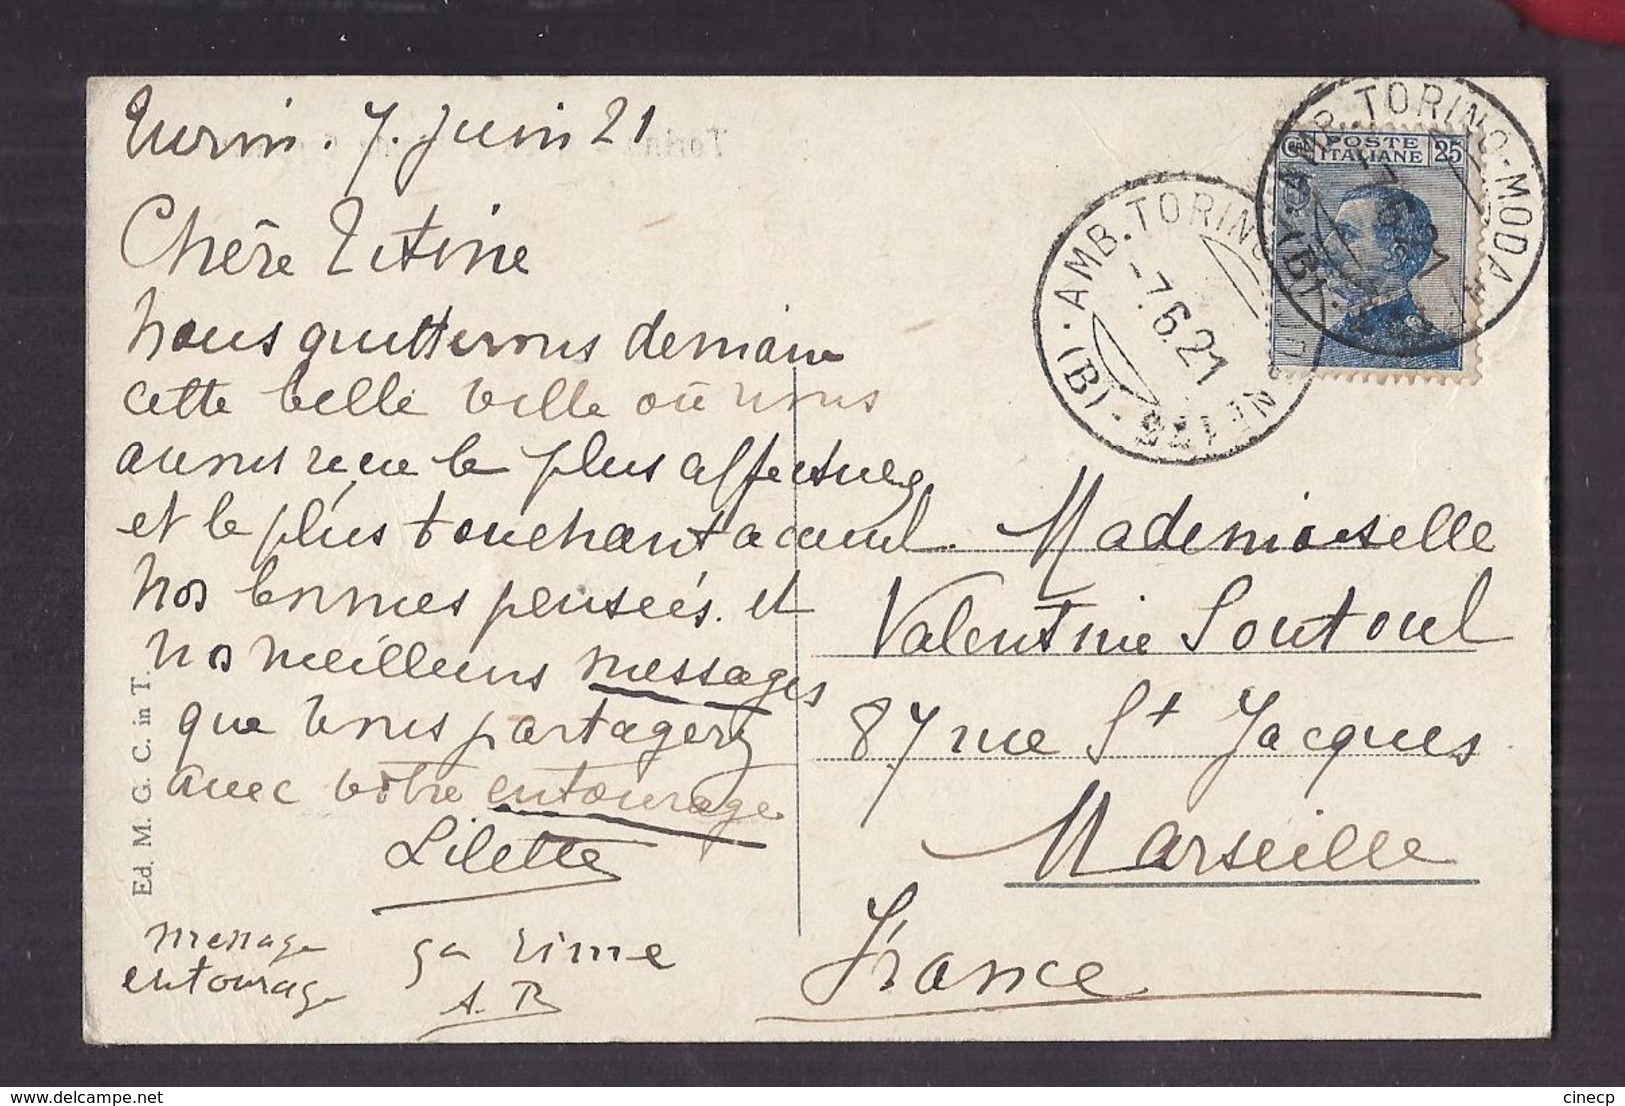 Turin. 7. Juin 21
Chère Titine
Nous quitterons demain
cette belle ville où nous
avons reçu le plus affectueux
et le plus touchant accueil.
Nos bonnes pensées et
nos meilleurs messages
que vous partagerez
avec votre entourage
Lilette
message
entourage
ça rime
A. B
Ed. M. G. C. in T.
POSTE
ITALIANE
25
AMB. TORINO-MODANE 176 (B)
-7.6.21
AMB. TORINO-MODANE
Mademoiselle
Valentine Soutoul
87 rue St Jacques
Marseille
France
Torino
www.delcampe.net
cinecp